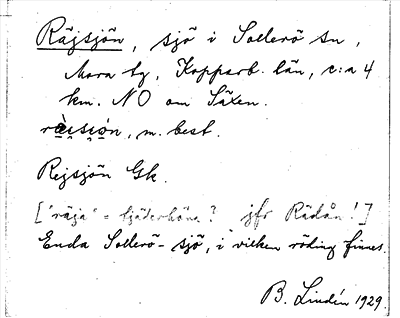 Räjsjön, sjö i Sollerö sn,
Mora tg, Kopparb. län, c:a 4
km. NO om Säxen.
m. best.
Rejsjön Gk.
['räja' = fjäderhöna? jfr Rädån!]
Enda Sollerö-sjö, i vilken röding finnes.
B. Lindén 1929.